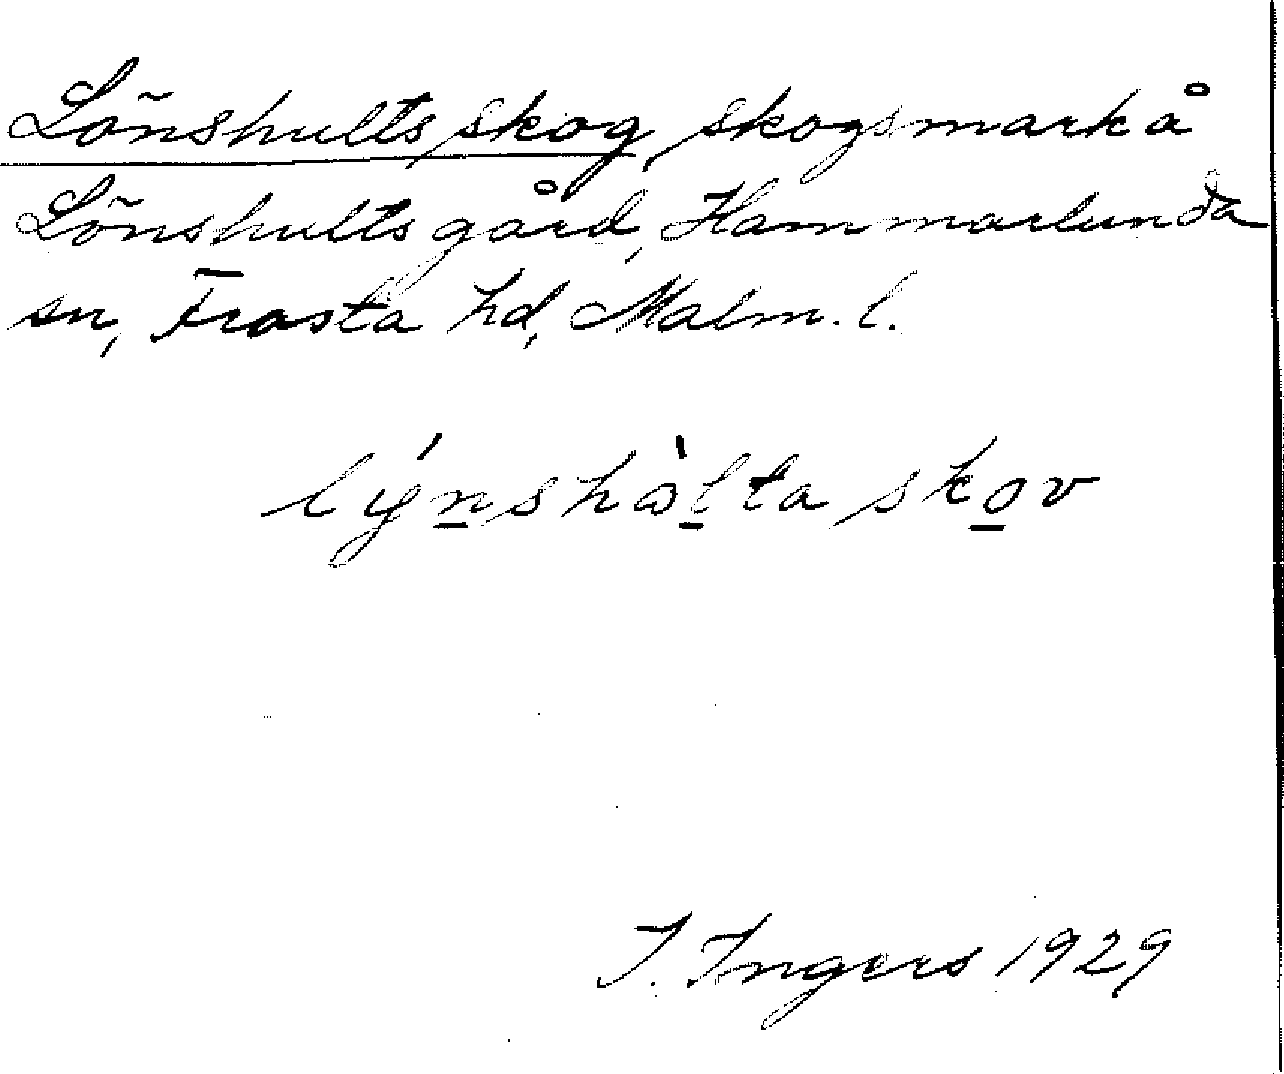 Lönshults skog, skogsmark å
Lönshults gård, Hammarlunda
sn, Frosta hd, Malm. l.
lýnshòlta skov
I. Ingers 1929